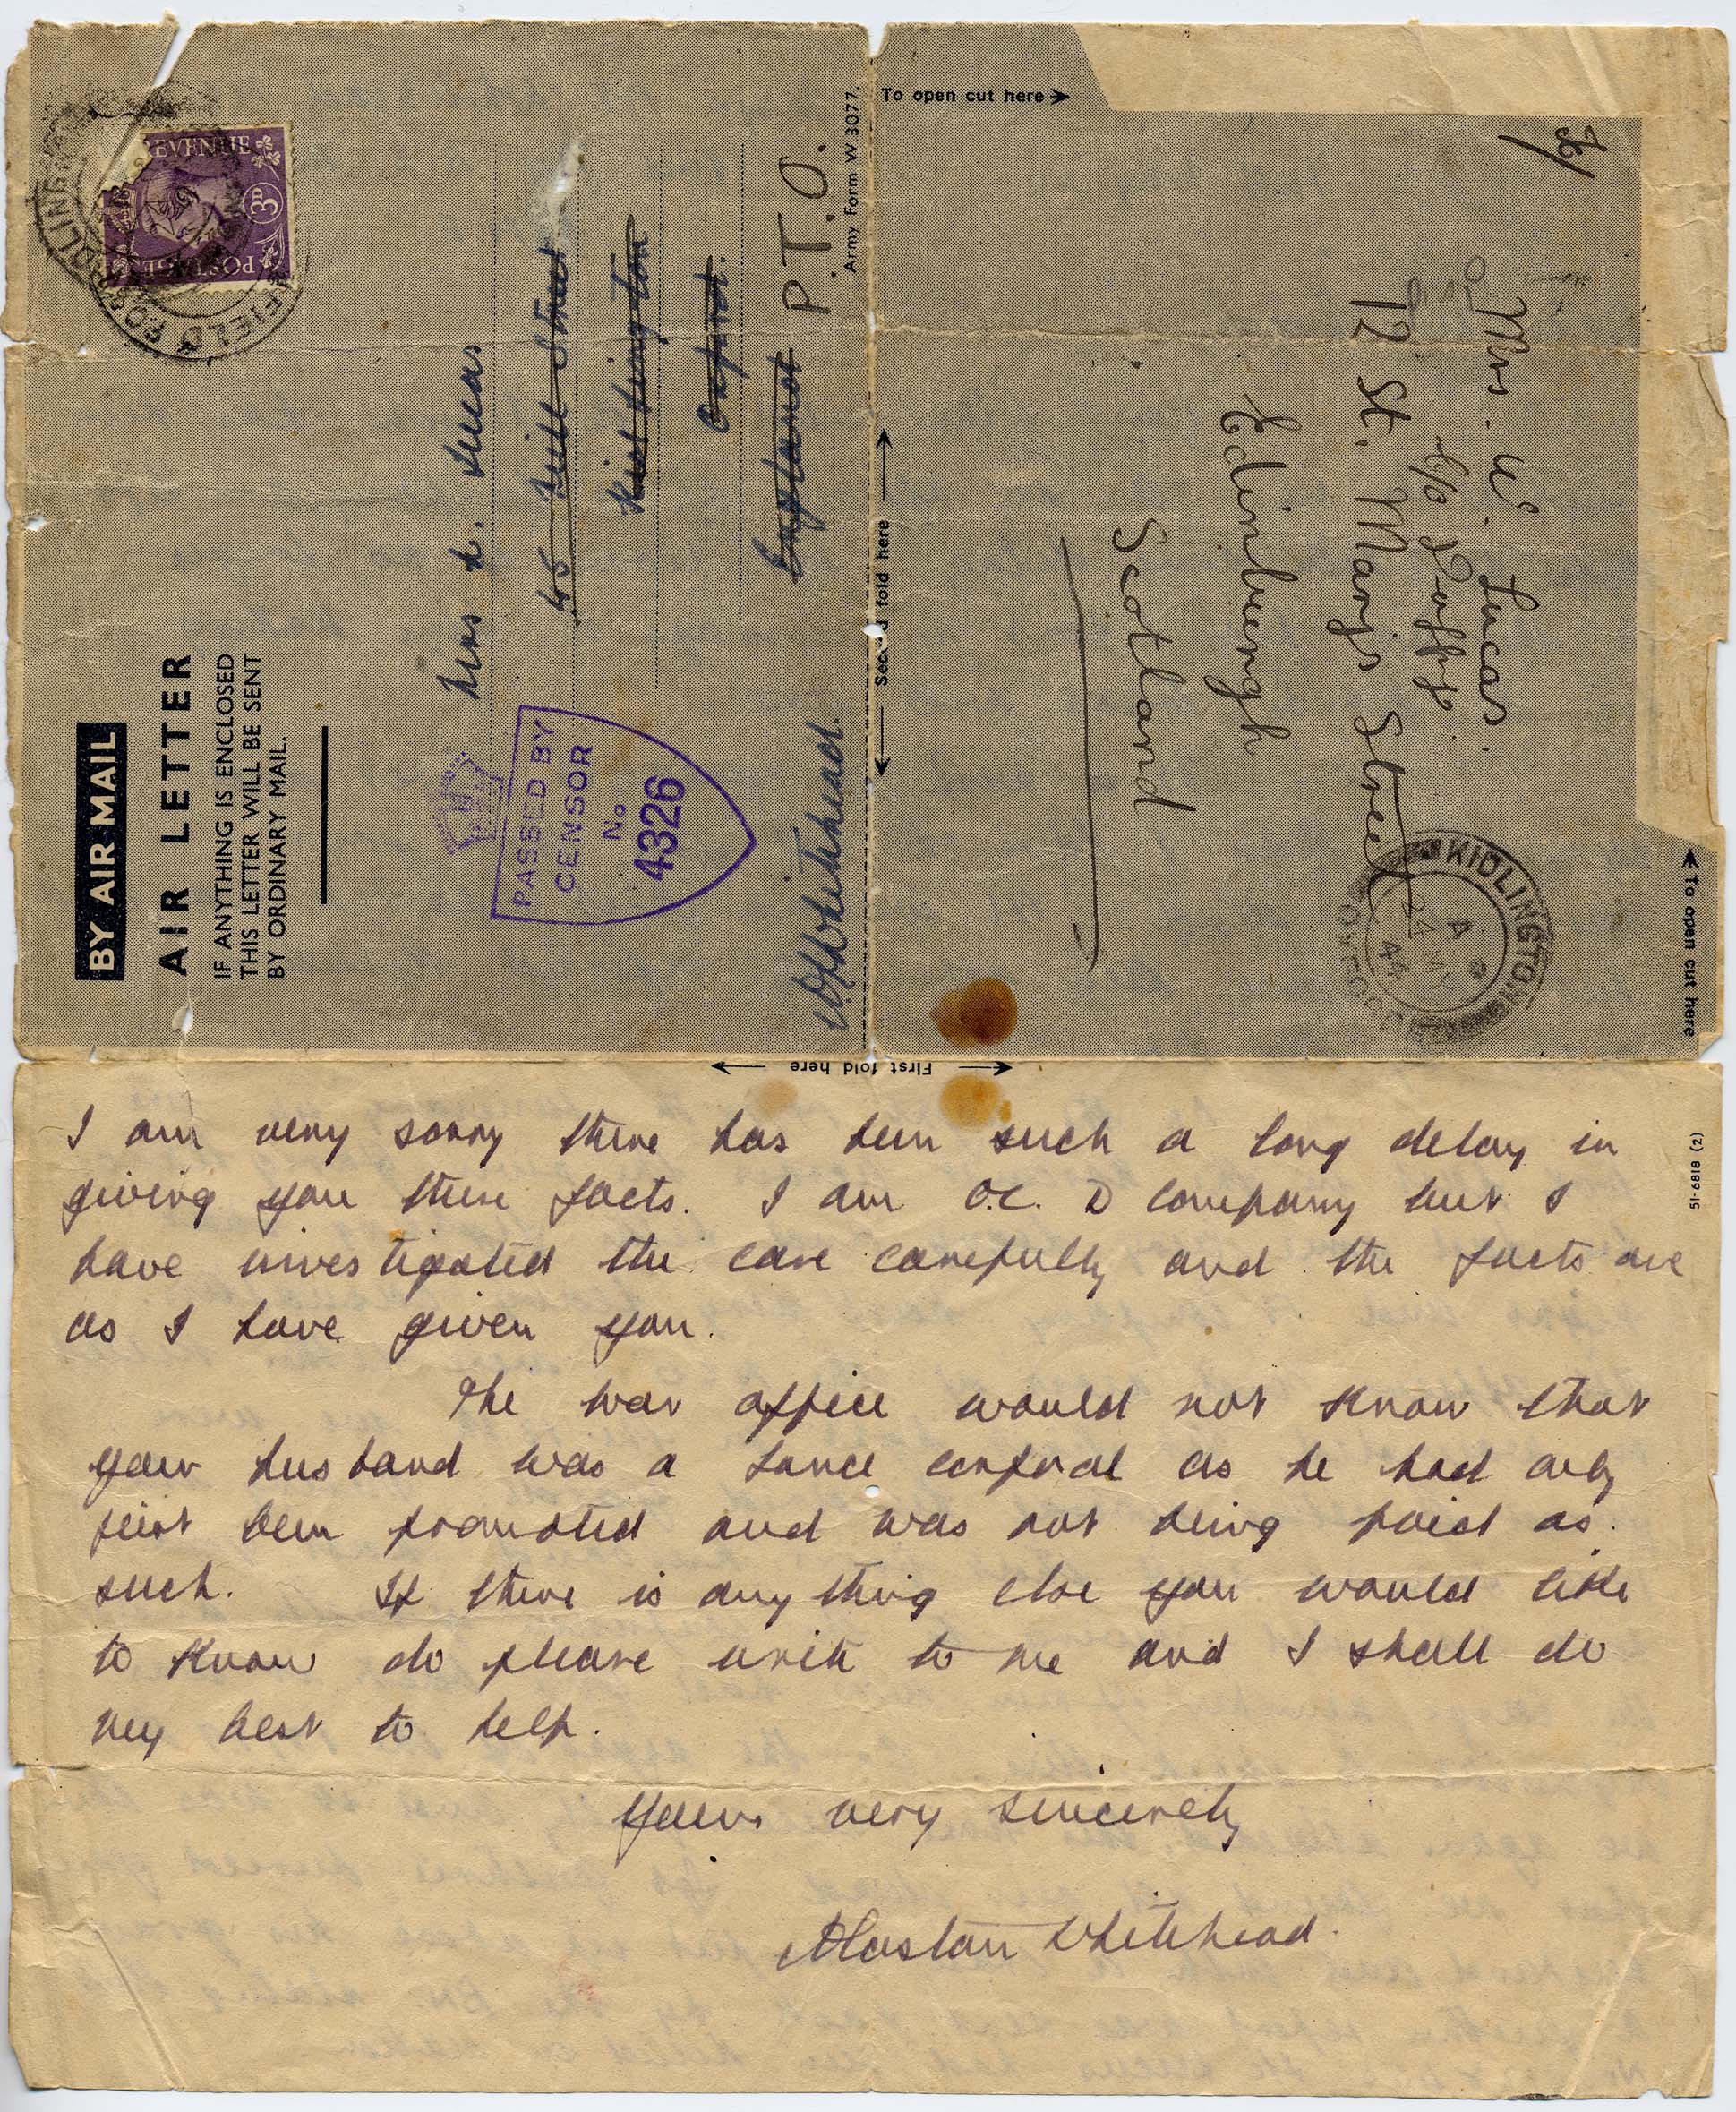 BY AIR MAIL
AIR LETTER
IF ANYTHING IS ENCLOSED
THIS LETTER WILL BE SENT
BY ORDINARY MAIL.
REVENUE
3D
POSTAGE
FIELD
Mrs Lucas
45 Mill Street
Kidlington
Oxford.
England P.T.O.
PASSED BY
CENSOR
No
4326
Whitehead.
Army Form W.3077.
To open cut here
Second fold here
Mrs. Lucas.
c/o Duffy
12 St. Mary's Street
Edinburgh
Scotland
KIDLINGTON
A
24 MY
44
OXFORD
To open cut here
First fold here
51-6818 (2)
I am very sorry there has been such a long delay in
giving you these facts. I am O.C. D Company but I
have investigated the case carefully and the facts are
as I have given you.
The war office would not know that
your husband was a lance corporal as he had only
just been promoted and was not being paid as
such. If there is anything else you would like
to know do please write to me and I shall do
my best to help.
Yours very sincerely
Alastair Whitehead.